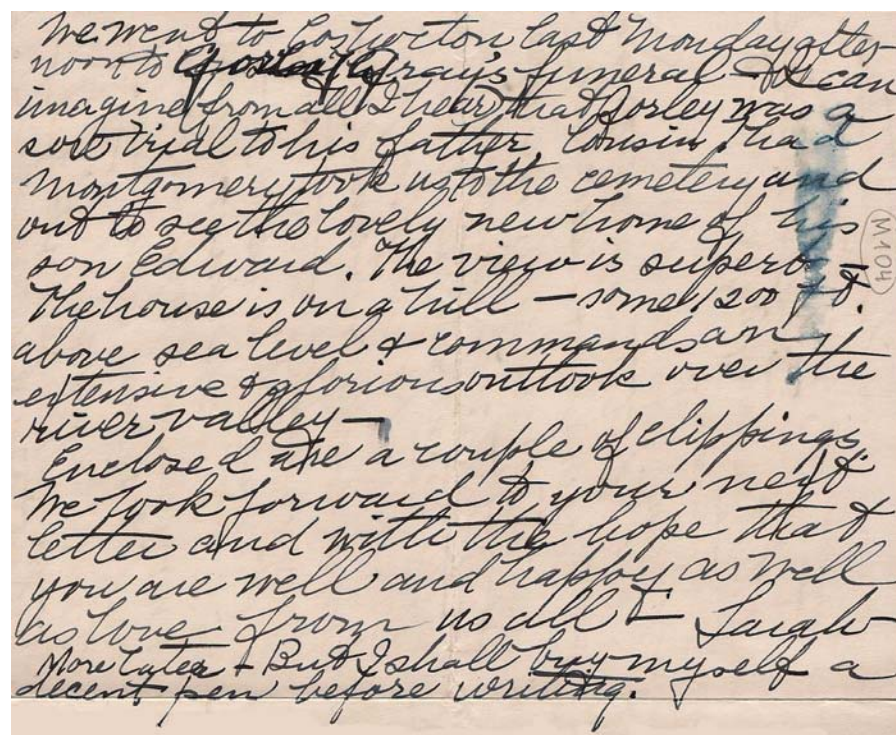 We went to Coshocton last Monday after
noon to Gray's funeral - I can
imagine from all I hear, that Corley was a
sore trial to his father. Cousin Thad
Montgomery took us to the cemetery and
out to see the lovely new home of his
son Edward. The view is superb.
The house is on a hill - some 1200 ft.
above sea level & commands an
extensive & glorious outlook over the
river valley -
Enclosed are a couple of clippings.
We look forward to your next
letter and with the hope that
you are well and happy as well
as love from us all - Sarah
More later - But I shall buy myself a
decent pen before writing.
M104